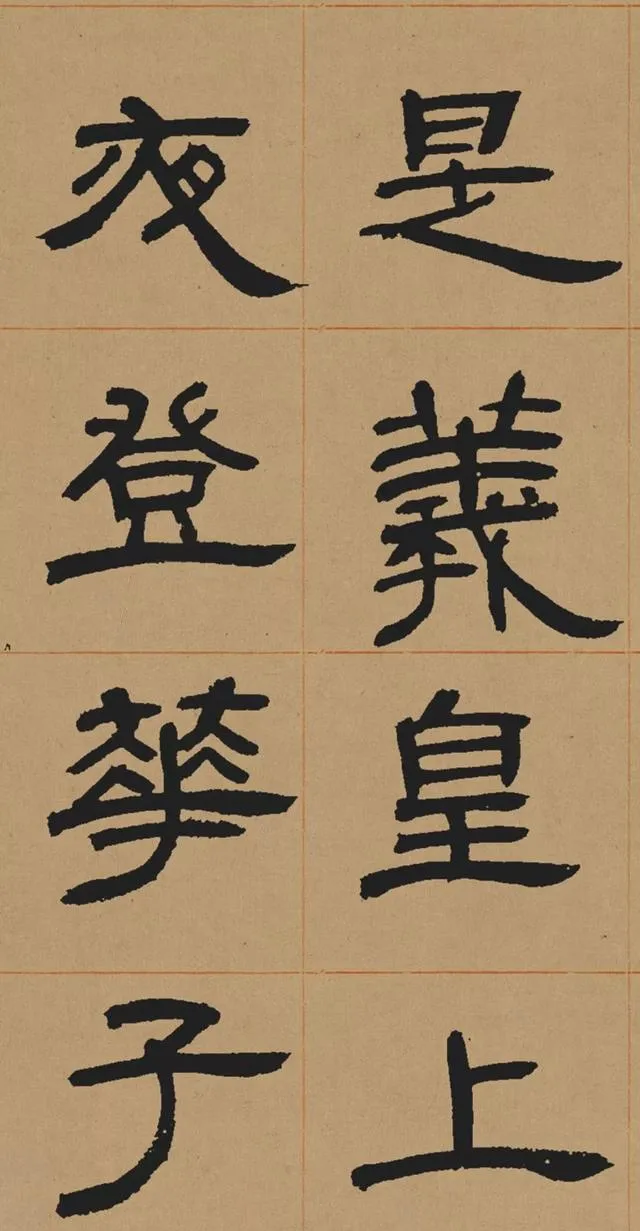 是義皇上
夜登華子